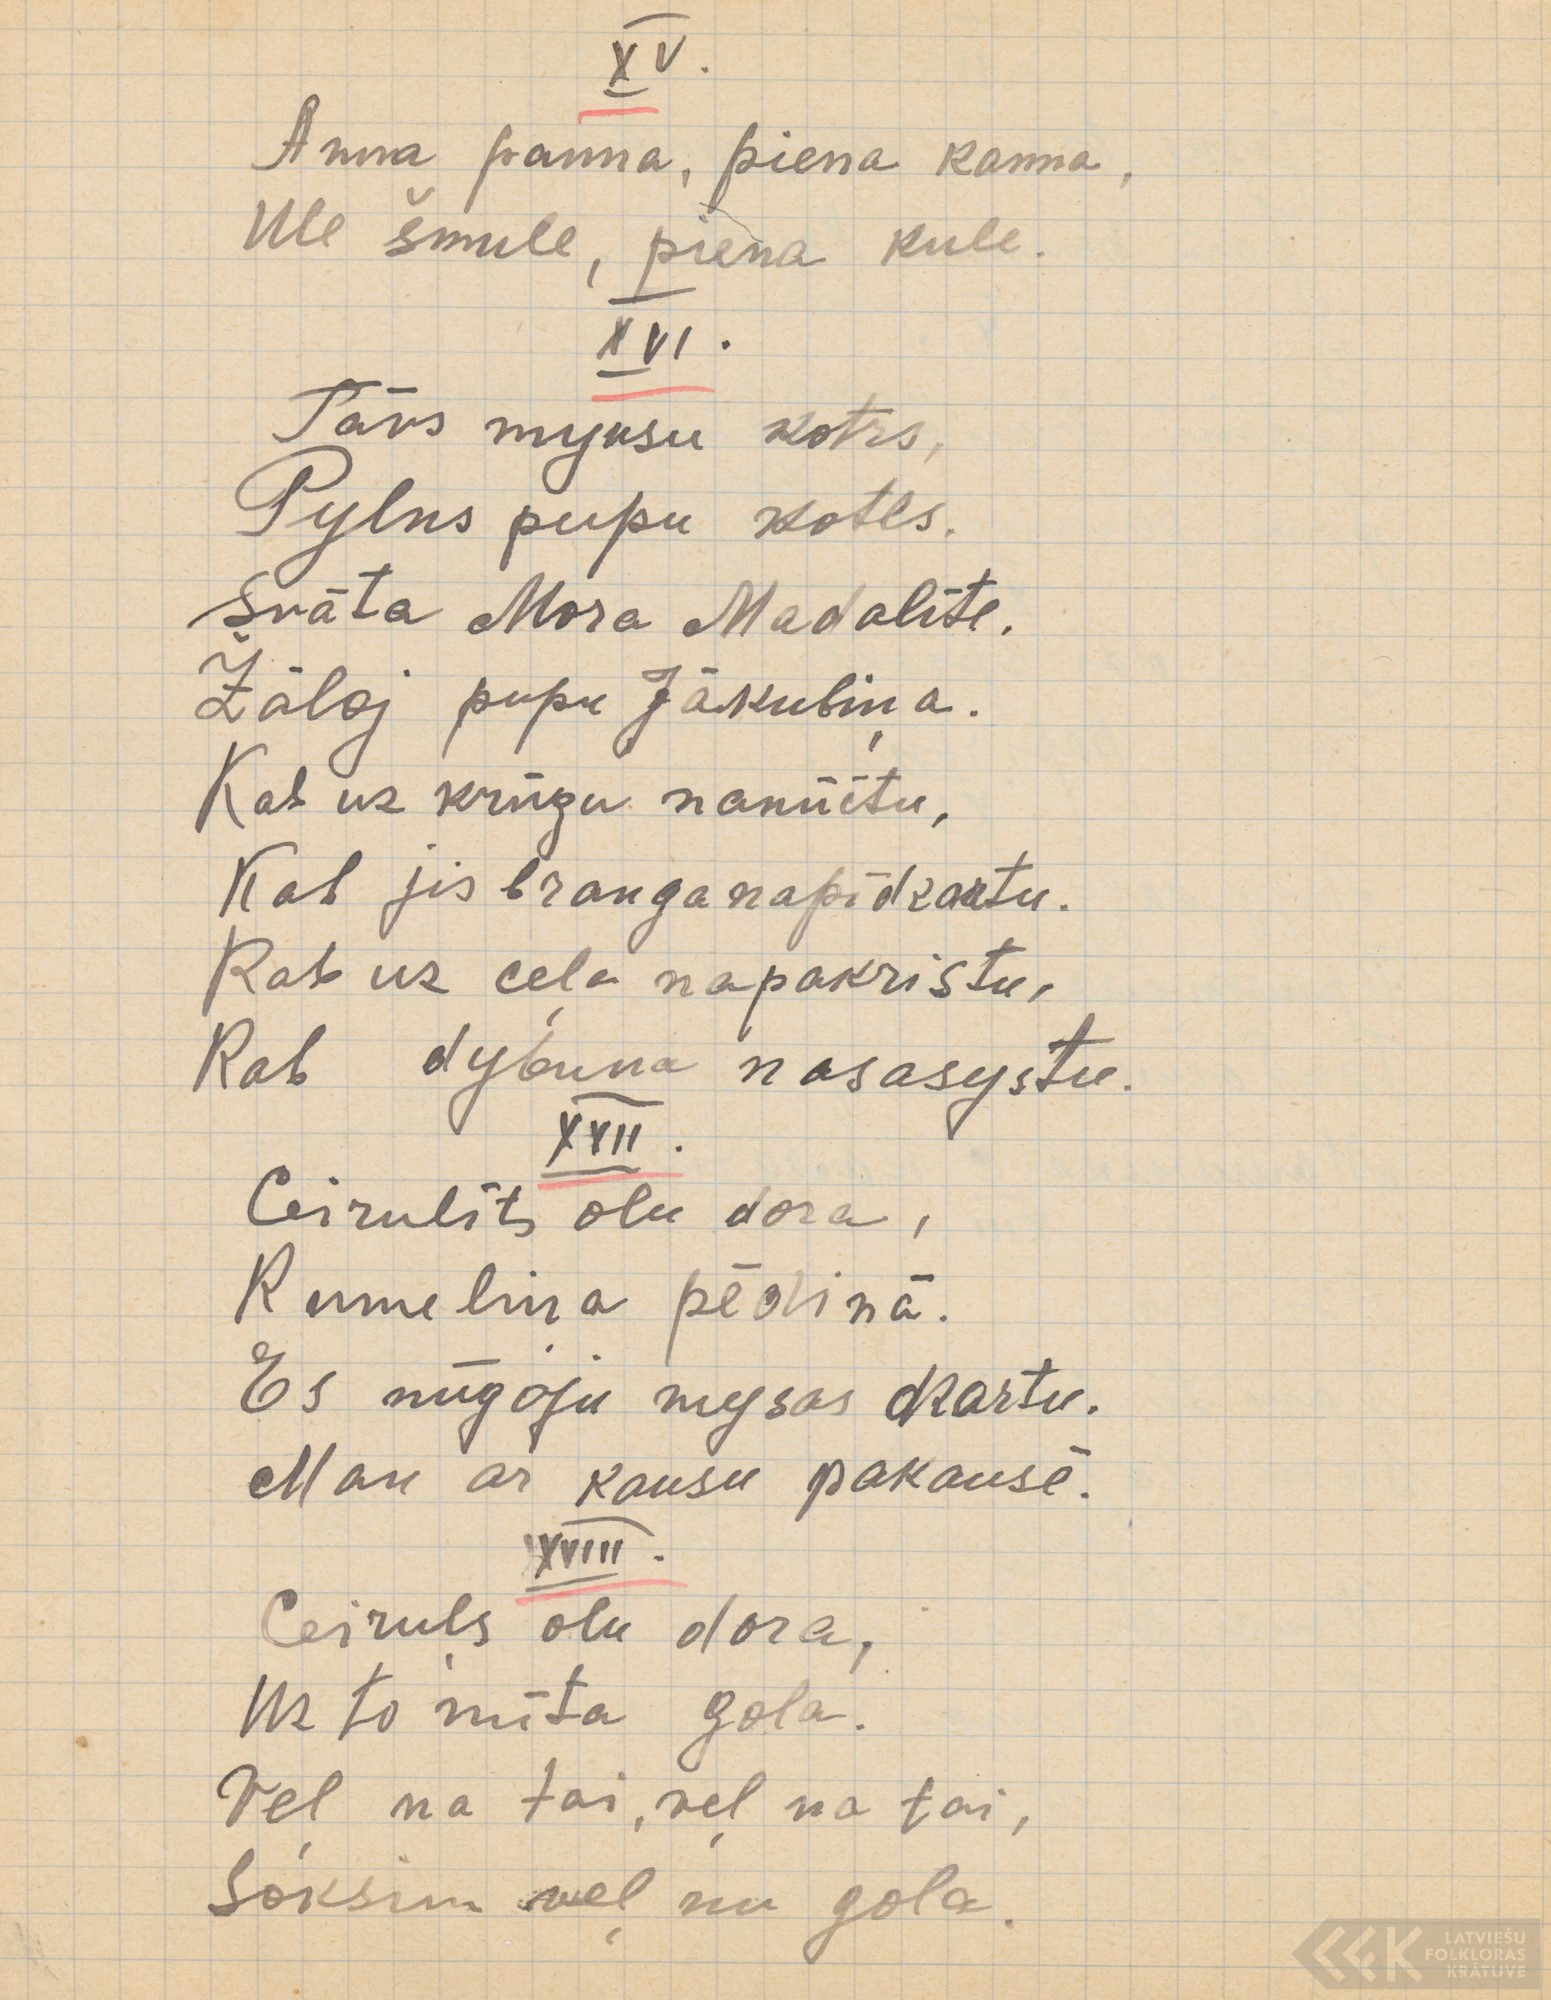 XV.
Anna panna, piena kanna,
Ule šmule, piena kule.
XVI.
Tāvs myusu kotrs,
Pylns pupu kotls.
Svāta Mora Madalīte.
Žāloj pupu Jākubiņa.
Kab uz krūgu nanūītu,
Kab jis branga napīdzartu.
Kab uz ceļa napakristu,
Kab dybuna nasasystu.
XVII.
Ceirulīts olu dora,
Kumeliņa pēdiņā.
Es nūgöju mysas dzartu.
Man ar kausu pakausē.
XVIII.
Ceiruļs olu dora,
Uz to mīta gola.
Veļ na tai, veļ na tai,
Soksim veļ nu gola.
LATVIEŠU
FOLKLORAS
KRĀTUVE